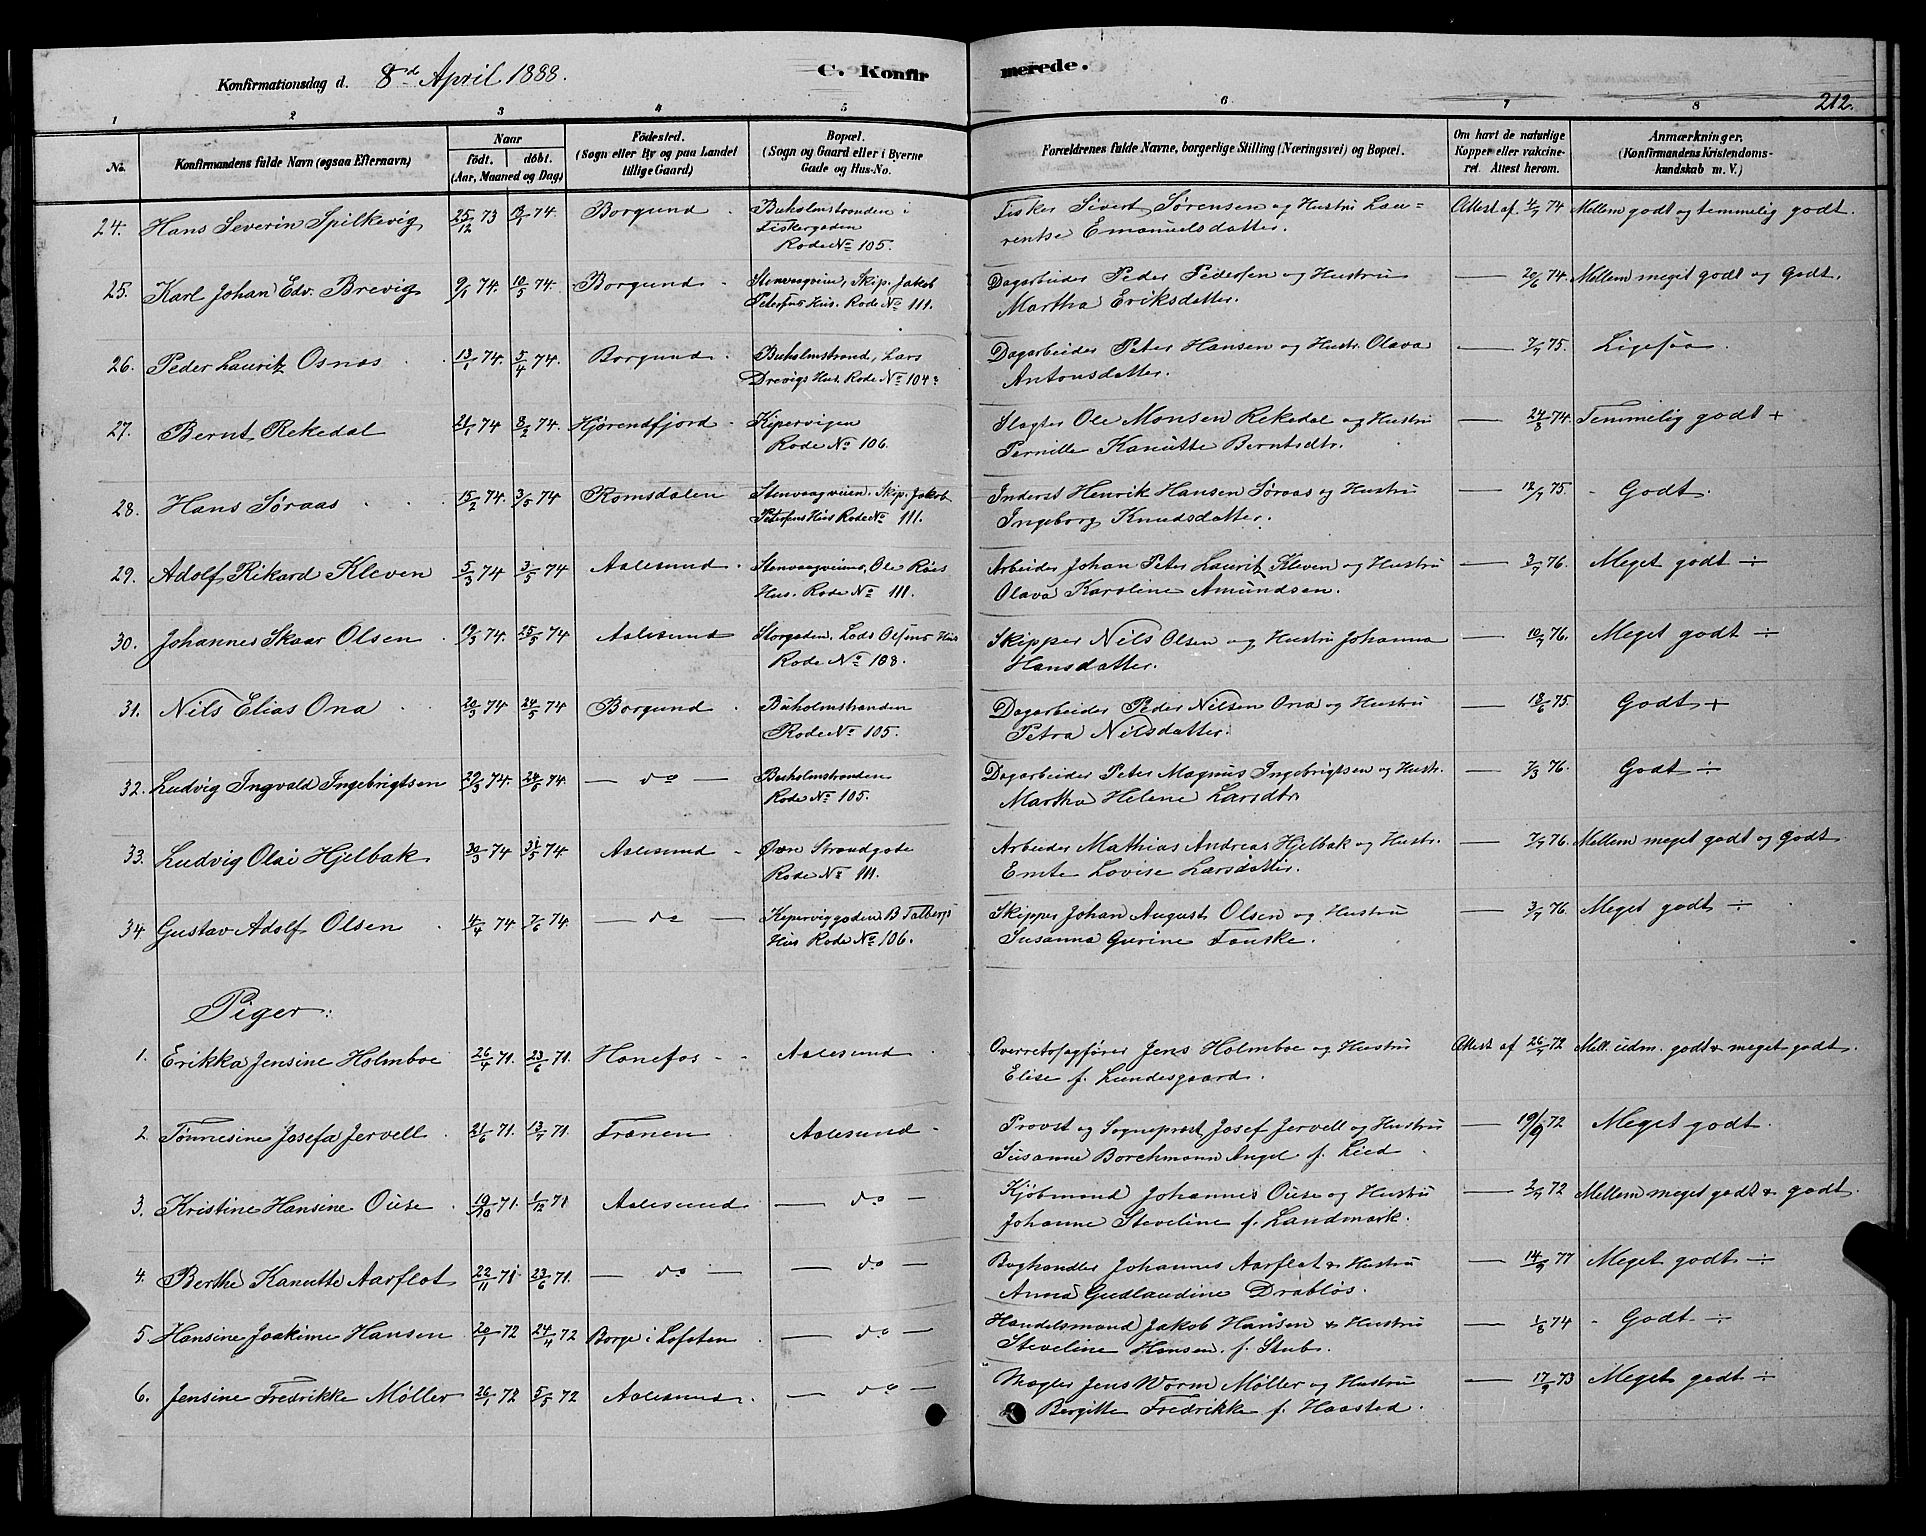 Konfirmationsdag d. 8d April 1888.
C. Konfirmerede.
212.
1 2 3 4 5 6 7 8
No.
Konfirmandens fulde Navn (ogsaa Efternavn)
Naar
födt. döbt.
(Aar, Maaned og Dag)
Födested.
(Sogn eller By og paa Landet
tillige Gaard)
Bopæl.
(Sogn og Gaard eller i Byerne
Gade og Hus-No.
Forældrenes fulde Navne, borgerlige Stilling (Næringsvei) og Bopæl.
Om havt de naturlige
Kopper eller vakcine-
ret. Attest herom.
Anmærkninger,
(Konfirmandens Kristendoms-
kundskab m. V.)
24. Hans Severin Spilkevig 25/12 73 /1 74. Borgund Buholmstranden i Fisker Sivert Sørensen og Hustru Lau= Attest af 74 Mellem godt og temmelig godt.
Fiskergaden rentse Emanuelsdatter.
Rode No 105.
25. Karl Johan Edv. Brevig 9/1 74. 10/5 74. Borgund Stenvaagveien, Skip. Jakob Dagarbeider Peder Pedersen og Hustru — 20/6 74. Mellem meget godt og Godt.
Petersens Hus. Rode No 111. Martha Eriksdatter.
26. Peder Lauritz Osnes 13/1 74. 5/4 74. Borgund Buholmstrand, Lars Dagarbeider Peter Hansen og Hustr. Olava — 7/7 75. Ligesaa
Drevigs Hus. Rode No 104 Antonsdatter.
27. Bernt Rekedal 21/1 74 8/2 74. Hjørendfjord Kipervigen Slagter Ole Monsen Rekedal og Hustru — 24/8 74. Temmelig godt +
Rode No 106. Pernille Kanutte Berntsdtr.
28. Hans Søraas 15/2 74. 3/5 74 Romsdalen Stenvaagveien. Skip. Jakob Inderst Henrik Hansen Søraas og Hustru — 12/7 75. Godt.
Petersens Hus Rode No 111. Ingeborg Knudsdatter.
29. Adolf Rikard Kleven 5/3 74 3/5 74 Aalesund Stenvaagveiens, Ole Røes Arbeider Johan Peter Laurits Kleven og Hustru — 3/7 76. Meget godt ÷
Hus. Rode No 111. Olava Karoline Amundsen.
30. Johannes Skaar Olsen 19/3 74. 25/5 74 Aalesund Storgaden, Lods Olsens Hus Skipper Nils Olsen og Hustru Johanna — 10/7 76. Meget godt ÷
Rode No 108. Hansdatter.
31. Nils Elias Ona 20/3 74 24/5 74 Borgund Buholmstranden Dagarbeider Peder Nilsen Ona og Hustru — 18/6 75. Godt +
Rode No 105. Petra Nilsdatter.
32. Ludvig Ingvald Ingebrigtsen 29/3 74. 24/5 74. — do — Buholmstranden Dagarbeider Peter Magnus Ingebrigtsen og Hustr. — 7/3 76. Godt ÷
Rode No 105. Martha Helene Larsdtr
33. Ludvig Olai Hjelbak 30/3 74. 31/5 74. Aalesund Øvre Strandgade Arbeider Mathias Andreas Hjelbak og Hustr. — 7/7 76. Mellem meget godt og Godt
Rode No 111. Emte Lovise Larsdatter.
34 Gustav Adolf Olsen 4/4 74 7/6 74. — do — Kiperviggaden B. Talbergs Skipper Johan August Olsen og Hustru — 3/7 76. Meget godt ÷
Hus Rode No 106. Susanna Gurine Fauske.
Piger:
1. Erikka Jensine Holmboe 26/4 71. 23/6 71. Honefos Aalesund Overretssagfører Jens Holmboe og Hustru Attest af 26/7 72 Mell. udm. godt & meget godt.
Elise f. Lundesgaard.
2. Tønnesine Josefa Jervell 21/6 71. 13/7 71. Franen Aalesund Provst og Sogneprest Josef Jervell og Hustru — 19/9 72 Meget godt.
Susanne Borchmann Angel f. Lied
3. Kristine Hansine Ouse 19/10 71. 1/12 71 Aalesund — do — Kjøbmand Johannes Ouse og Hustru — 2/7 72 Mellem meget godt & godt.
Johanne Steveline f. Landmark.
4. Berthe Kanutte Aarflot 22/11 71. 23/6 71. — do — — do — Boghandler Johannes Aarflot & Hustru — 14/9 77 Meget godt ÷
Anna Gudlaudine Drabløs.
5 Hansine Joakime Hansen 20/1 72 24/4 72 Borge i Lofoten — do — Handelsmand Jakob Hansen & Hustru — 1/8 74 Godt ÷
Steveline Hansen. f. Stub.
6. Jensine Fredrikke Møller 26/1 72 5/5 72 Aalesund — do — Mægler Jens Worm Møller og Hustru — 17/9 73 Meget godt ÷
Bergitte Fredrikke f. Haasted.